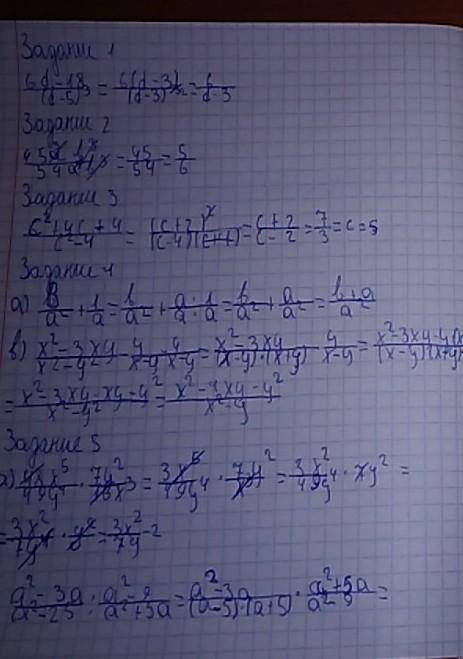 Задание 1
6d-18/(d-5)³ = 6(d-3)/(d-3)³² = 6/d-3
Задание 2
= 45/54 = 5/6
Задание 3
c²+4c+4/c²-4 = (c+2)²/(c-4)(c+1) = c+2/c-2 = 7/3 = c=5
Задание 4
а) в/a² + 1/a = в/a² + a/a · 1/a = в/a² + a/a² = в+a/a²
в) x²-3xy/x²-y² - y/x-y = x²-3xy/(x-y)·(x+y) - y/x-y = x²-3xy-y(x/(x-y)(x+y
= x²-3xy-xy-y²/x²-y² = x²-4xy-y²/x²-y
Задание 5
= 3x⁵/49y⁴ · = 3x²/49y⁴ · 7y² =
= 3x²/7y⁴ · y² = 3x²/7y-2
a²-3a/a²-25 : a²-9/a²+5a = a²-3a/(a-5)·(a+5) · a²+5a/a²-9 =